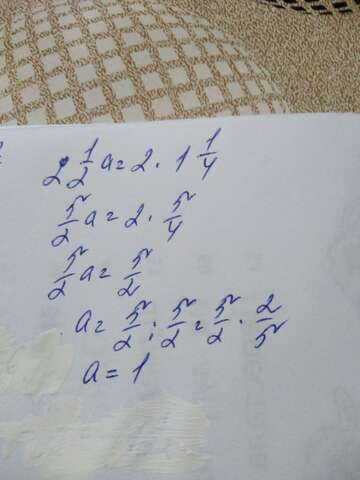 2 1/2 a = 2 · 1 1/4
5/2 a = 2 · 5/4
5/2 a = 5/2
a = 5/2 : 5/2 = 5/2 · 2/5
a = 1